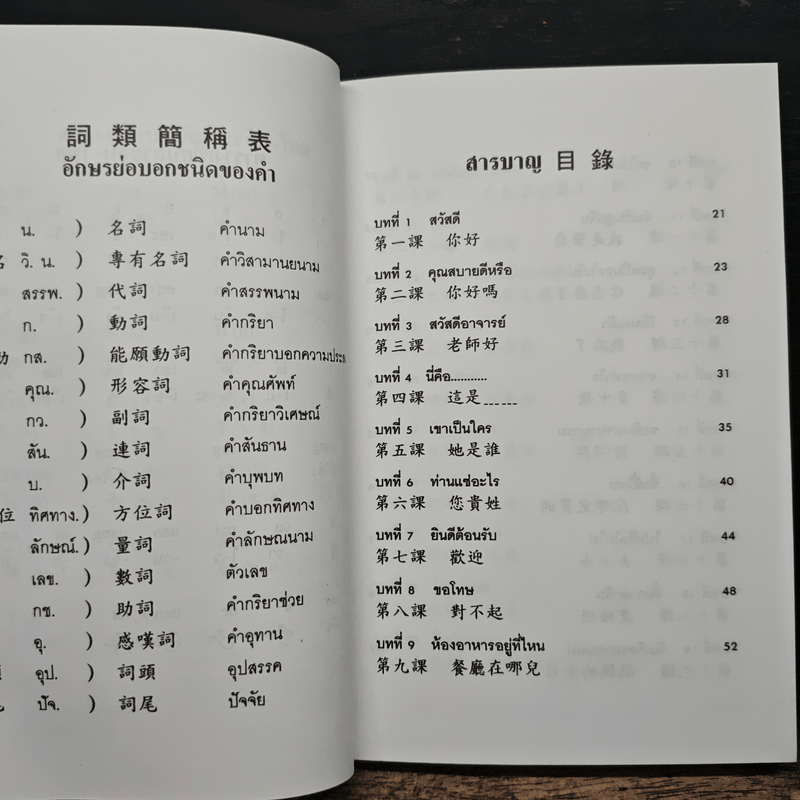 詞類簡稱表
อักษรย่อบอกชนิดของคำ
น. ) 名詞 คำนาม
วิ. น. ) 專有名詞 คำวิสามานยนาม
สรรพ. ) 代詞 คำสรรพนาม
ก. ) 動詞 คำกริยา
กส. ) 能願動詞 คำกริยาบอกความประส
คุณ. ) 形容詞 คำคุณศัพท์
กว. ) 副詞 คำกริยาวิเศษณ์
สัน. ) 連詞 คำสันธาน
บ. ) 介詞 คำบุพบท
位 ทิศทาง.) 方位詞 คำบอกทิศทาง
ลักษณ์.) 量詞 คำลักษณนาม
เลข. ) 數詞 ตัวเลข
กช. ) 助詞 คำกริยาช่วย
อุ. ) 感嘆詞 คำอุทาน
อุป. ) 詞頭 อุปสรรค
ปัจ. ) 詞尾 ปัจจัย
สารบาญ 目錄
บทที่ 1 สวัสดี 21
第一課 你好
บทที่ 2 คุณสบายดีหรือ 23
第二課 你好嗎
บทที่ 3 สวัสดีอาจารย์ 28
第三課 老師好
บทที่ 4 นี่คือ........... 31
第四課 這是______
บทที่ 5 เขาเป็นใคร 35
第五課 她是誰
บทที่ 6 ท่านแซ่อะไร 40
第六課 您貴姓
บทที่ 7 ยินดีต้อนรับ 44
第七課 歡迎
บทที่ 8 ขอโทษ 48
第八課 對不起
บทที่ 9 ห้องอาหารอยู่ที่ไหน 52
第九課 餐廳在哪兒